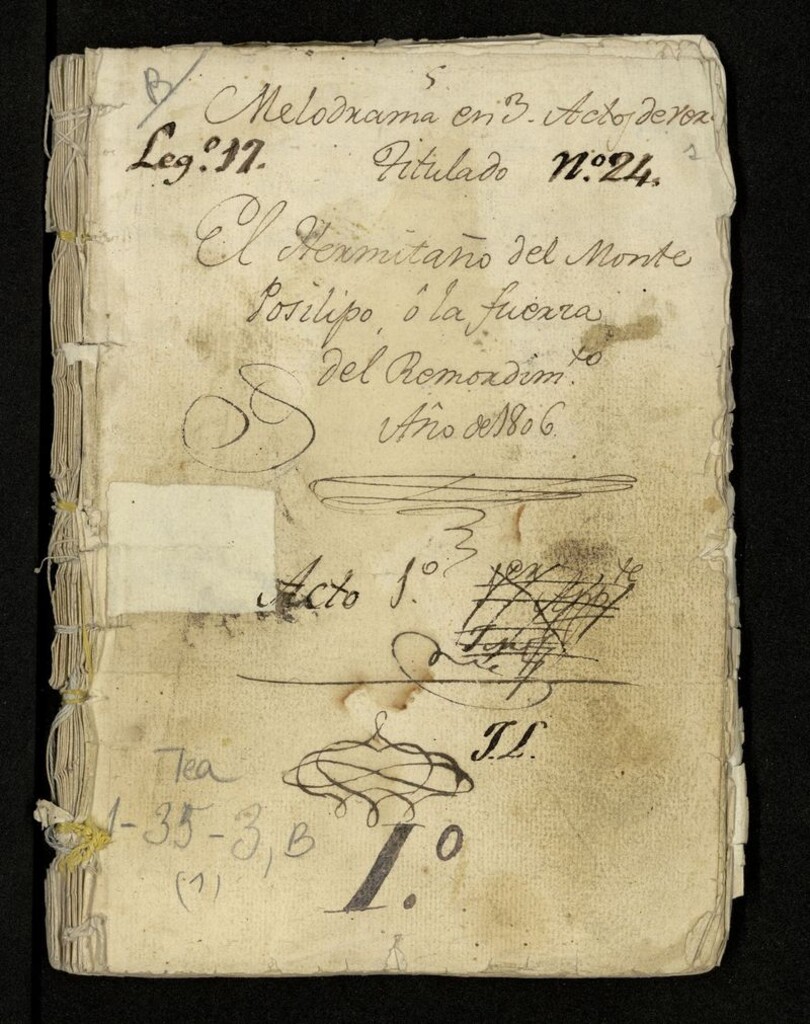 5
B
Melodrama en 3. Actos de
Leg.º 17. Titulado N.º 24.
El Hermitaño del Monte
Posilipo, ô la fuerza
del Remordim.to
Año de 1806
Acto 1.º
J.L.
Tea
1-35-3, B
(1)
1.º